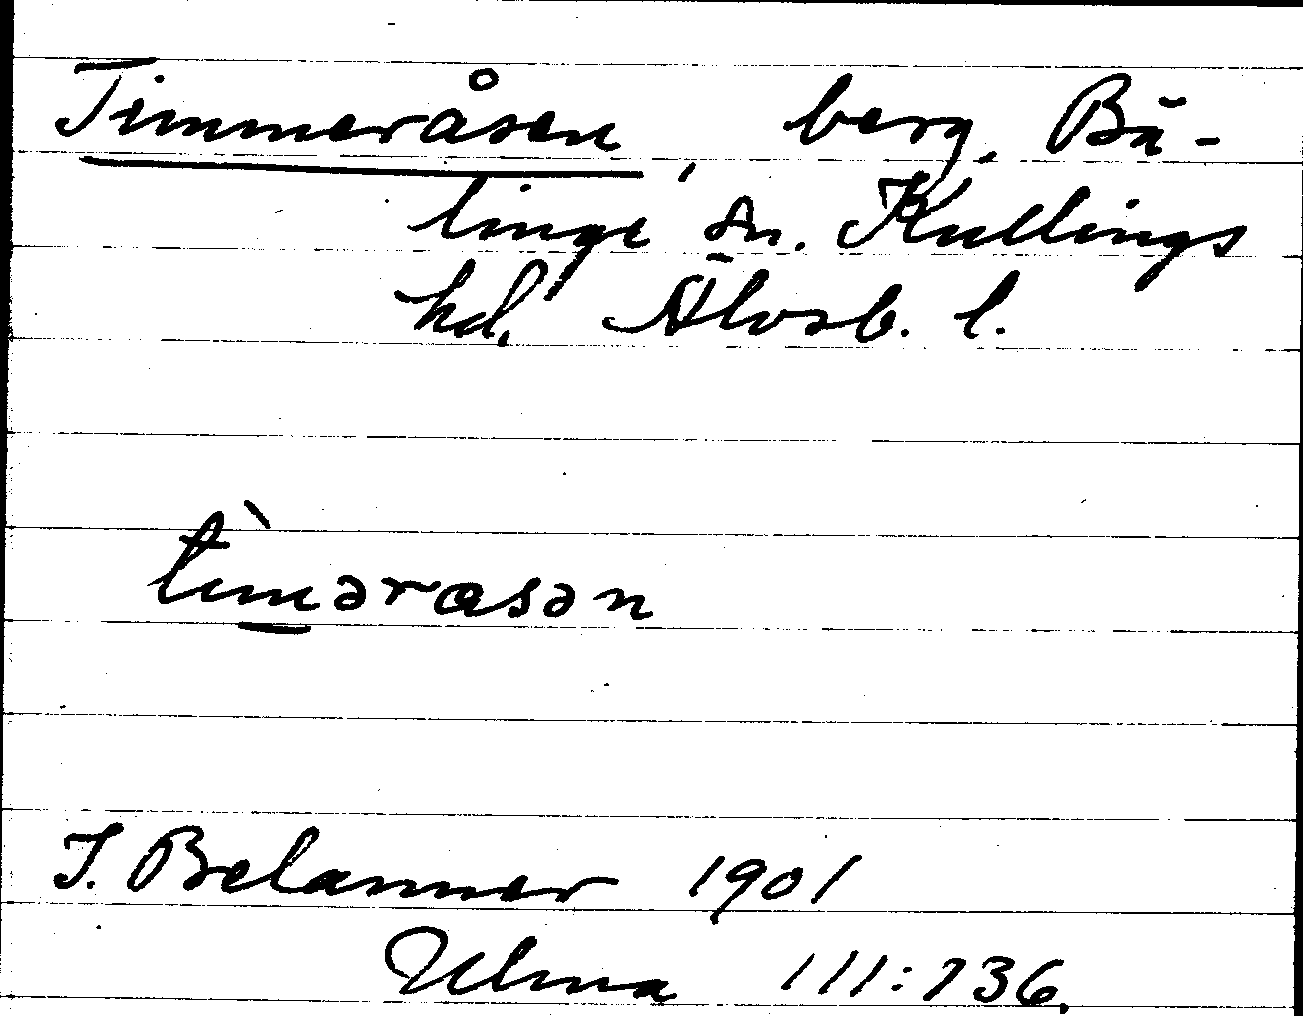 Timmeråsen, berg, Bä-
linge sn. Kullings
hd, Älvsb. l.
tìmərɑsən
J. Belanner 1901
Ulma 111:736.